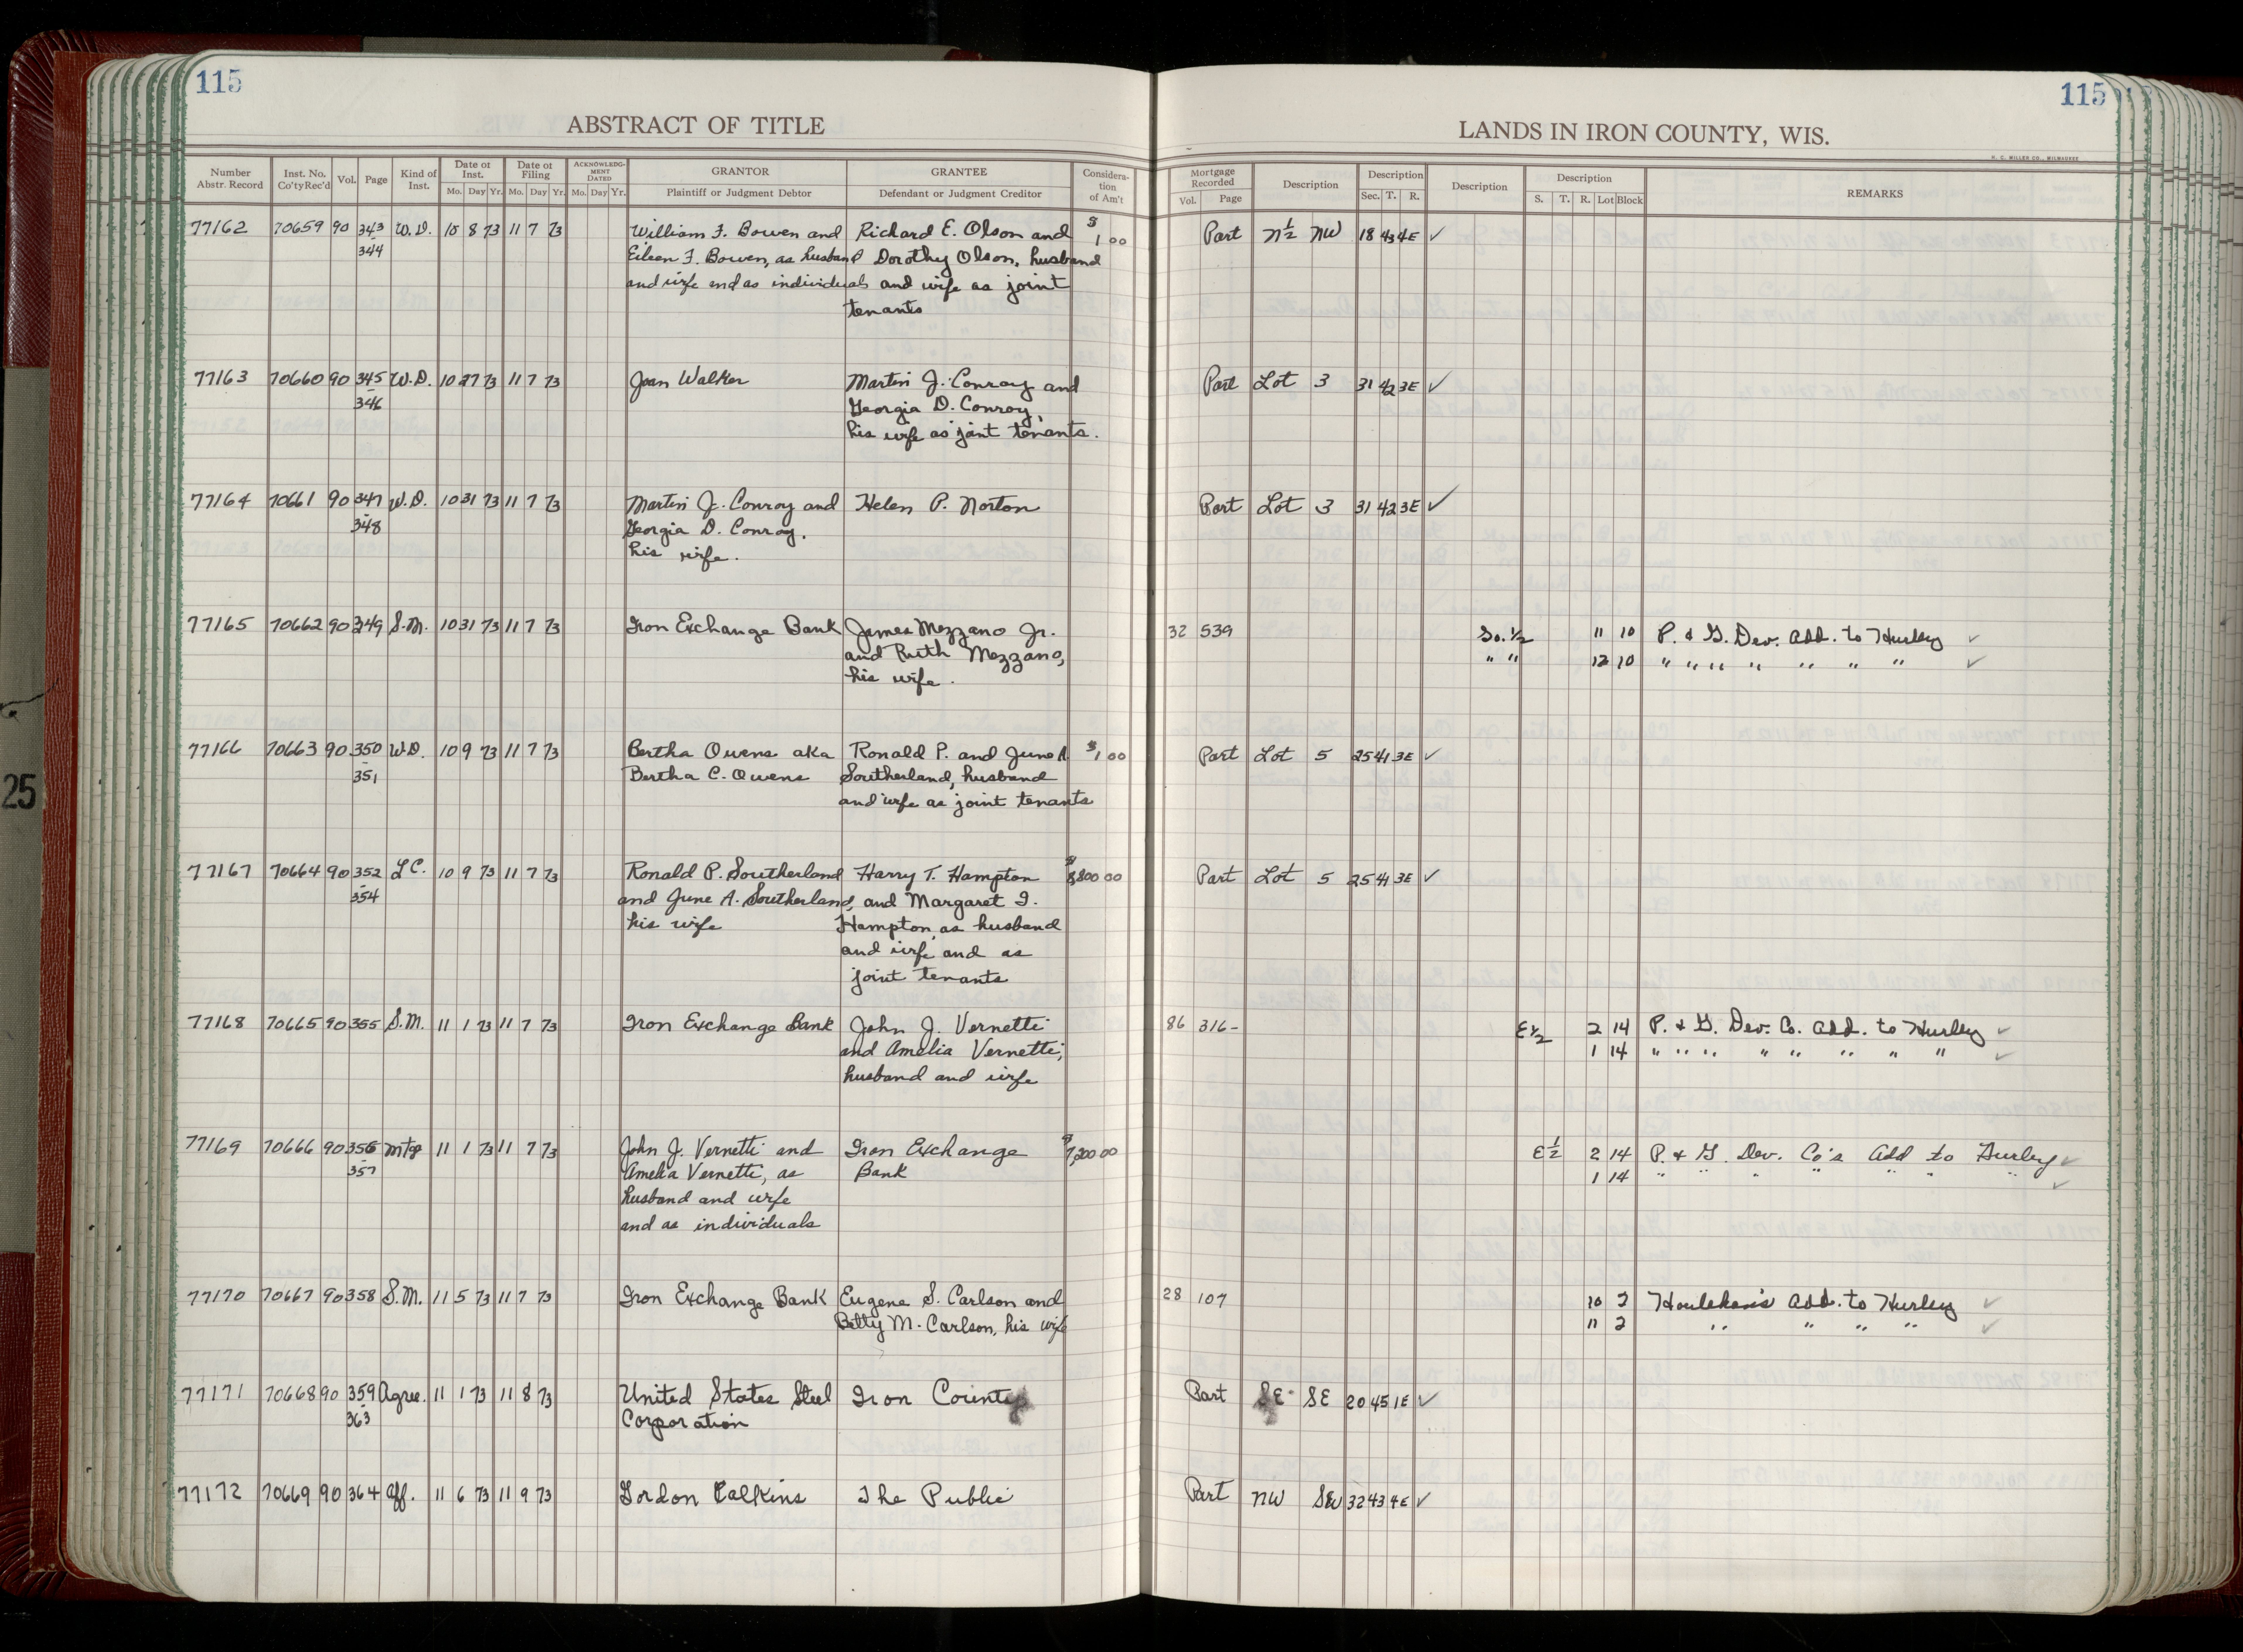 115
115
ABSTRACT OF TITLE
LANDS IN IRON COUNTY, WIS.
H. C. MILLER CO., MILWAUKEE
Number Abstr. Record | Inst. No. Co'ty Rec'd | Vol. | Page | Kind of Inst. | Date of Inst. Mo. Day Yr. | Date of Filing Mo. Day Yr. | ACKNOWLEDGMENT DATED Mo. Day Yr. | GRANTOR Plaintiff or Judgment Debtor | GRANTEE Defendant or Judgment Creditor | Consideration of Am't | Mortgage Recorded Vol. Page | Description | Description Sec. T. R. | Description | Description S. T. R. Lot Block | REMARKS
77162 70659 90 343 W.D. 10 8 73 11 7 73 William F. Bowen and Richard E. Olson and $1 00 Part N½ NW 18 43 4E ✓
- 344 Eileen F. Bowen, as husband Dorothy Olson, husband
and wife and as individuals and wife as joint
tenants
77163 70660 90 345 W.D. 10 27 73 11 7 73 Joan Walker Martin J. Conroy and Part Lot 3 31 42 3E ✓
- 346 Georgia D. Conroy,
his wife as joint tenants.
77164 70661 90 347 W.D. 10 31 73 11 7 73 Martin J. Conroy and Helen P. Norton Part Lot 3 31 42 3E ✓
- 348 Georgia D. Conroy,
his wife.
77165 70662 90 349 S.M. 10 31 73 11 7 73 Iron Exchange Bank James Mezzano Jr. 32 539 So. ½ 11 10 P. & G. Dev. Add. to Hurley ✓
and Ruth Mezzano, " " 12 10 " " " " " " " ✓
his wife.
77166 70663 90 350 W.D. 10 9 73 11 7 73 Bertha Owens aka Ronald P. and June A. $1 00 Part Lot 5 25 41 3E ✓
- 351 Bertha C. Owens Southerland, husband
and wife as joint tenants
77167 70664 90 352 L.C. 10 9 73 11 7 73 Ronald P. Southerland Harry T. Hampton $8,800 00 Part Lot 5 25 41 3E ✓
- 354 and June A. Southerland, and Margaret I.
his wife Hampton, as husband
and wife and as
joint tenants
77168 70665 90 355 S.M. 11 1 73 11 7 73 Iron Exchange Bank John J. Vernetti 86 316- E½ 2 14 P. & G. Dev. Co. Add. to Hurley ✓
and Amelia Vernetti, 1 14 " " " " " " " " ✓
husband and wife
77169 70666 90 356 Mtg 11 1 73 11 7 73 John J. Vernetti and Iron Exchange $7,200 00 E½ 2 14 P. & G. Dev. Co's Add to Hurley ✓
- 357 Amelia Vernetti, as Bank 1 14 " " " " " " " ✓
husband and wife
and as individuals
77170 70667 90 358 S.M. 11 5 73 11 7 73 Iron Exchange Bank Eugene S. Carlson and 28 107 10 2 Houlehan's Add. to Hurley ✓
Betty M. Carlson, his wife 11 2 " " " " ✓
77171 70668 90 359 Agree. 11 1 73 11 8 73 United States Steel Iron County Part SE SE 20 45 1E ✓
- 363 Corporation
77172 70669 90 364 Aff. 11 6 73 11 9 73 Gordon Calkins The Public Part NW SW 32 43 4E ✓
25